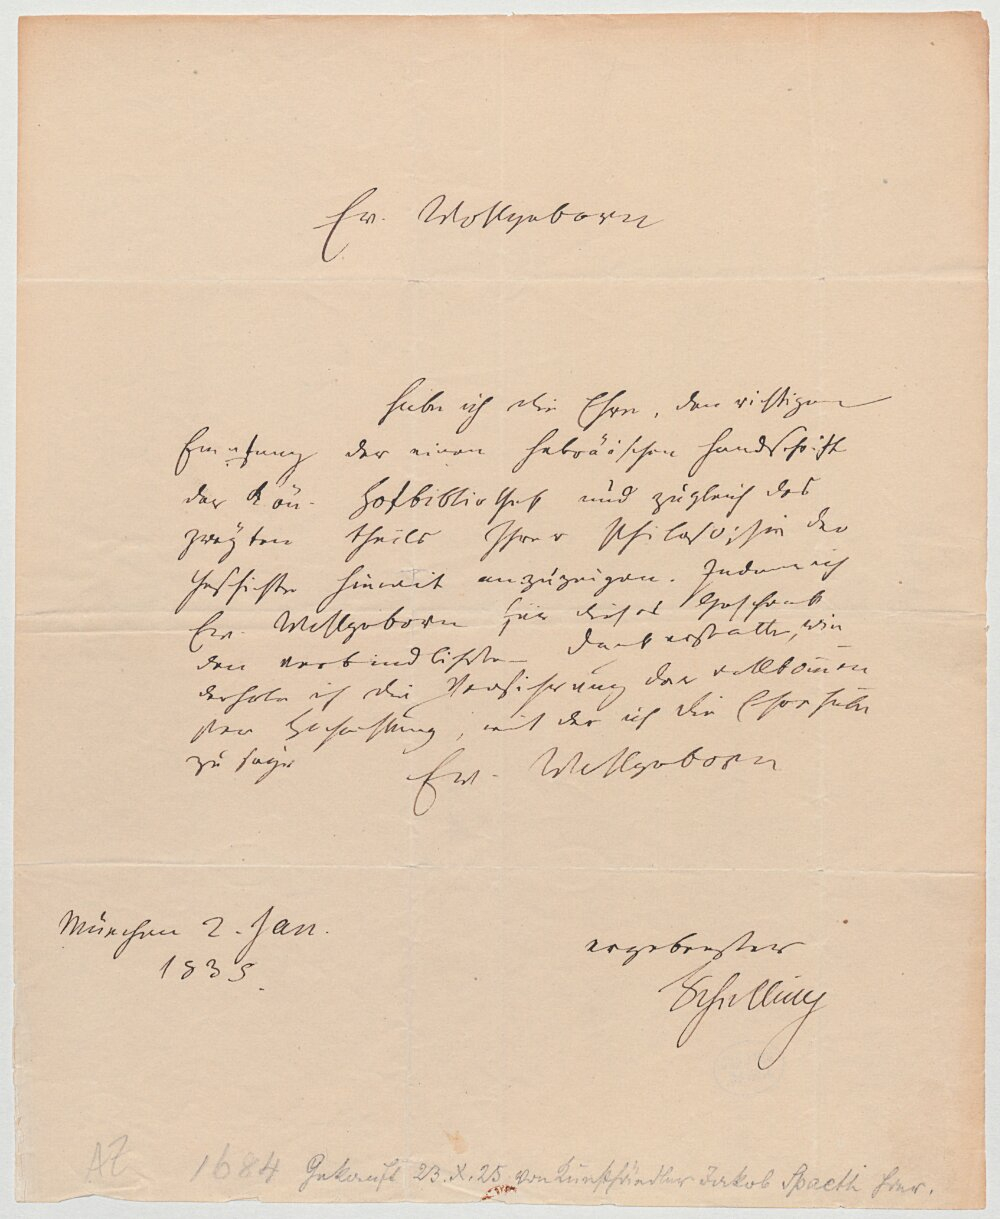 Ew. Wohlgeborn
habe ich die Ehre, den richtigen
Empfang der einen hebräischen Handschrift
der Kön. Hofbibliothek und zugleich des
zweyten Theils Ihrer Philosophie der
Geschichte hiemit anzuzeigen. Indem ich
Ew. Wohlgeborn für dieses Geschenk
den verbindlichsten Dank erstatte, wie
derhole ich die Versicherung der vollkom̅en
sten Hochachtung, mit der ich die Ehre habe
zu seyn
Ew. Wohlgeborn
München 2. Jan.
1835.
ergebenster
Schelling
AZ 1684 Gekauft 23.X.25 von Kunsthändler Jakob Spaeth hier.